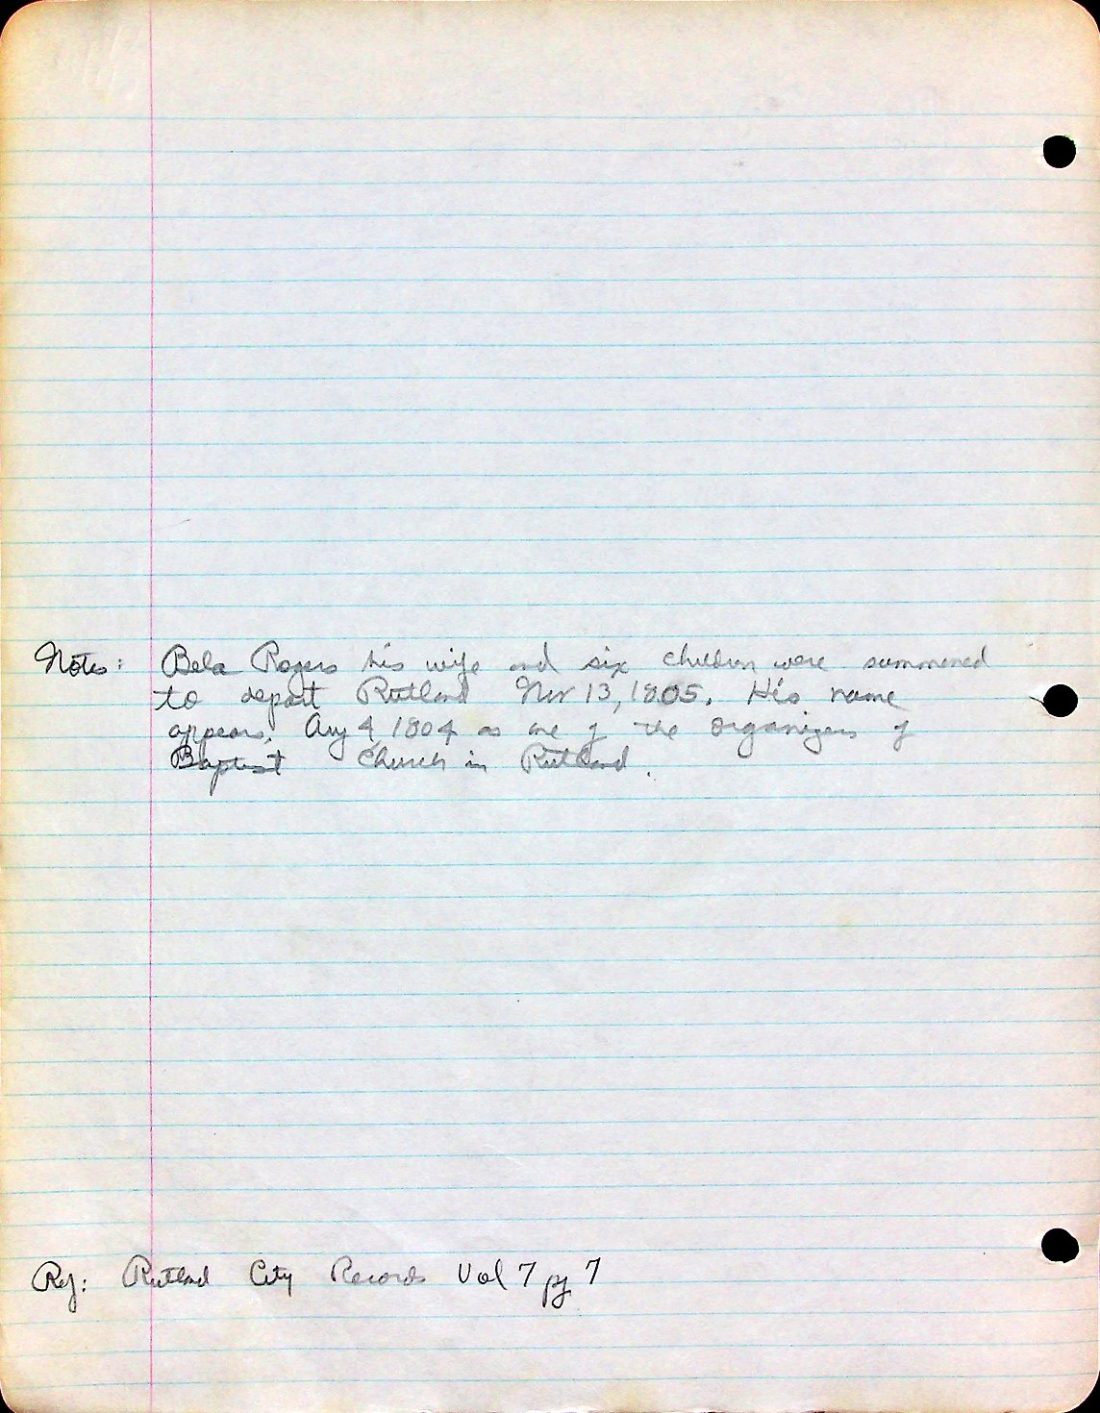 Notes: Bela Rogers his wife and six children were summoned
to depart Rutland Nov 13, 1805. His name
appears. Aug 4, 1804 as one of the organizers of
Baptist Church in Rutland.
Ref: Rutland City Records Vol 7 pg 7